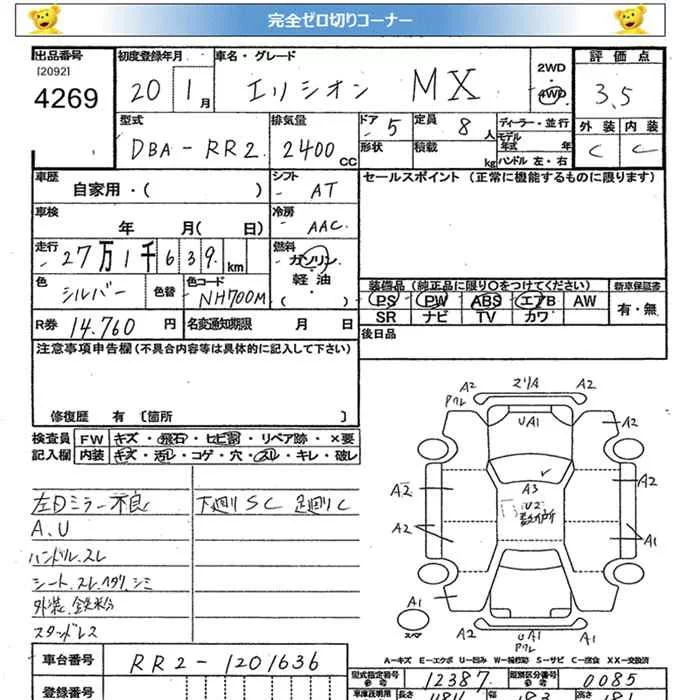 完全ゼロ切りコーナー
出品番号 初度登録年月 車名・グレード 2WD 評価点
[2092] 4269 20 1月 エリシオン MX 4WD 3.5
型式 排気量 ドア 5 定員 8人 ディーラー・並行 外装 内装
DBA-RR2 2400cc 形状 積載 kg モデル年式 年 C C
ハンドル 左・右
車歴 シフト セールスポイント (正常に機能するものに限ります)
自家用・( ) AT
車検 冷房
年 月( 日) AAC
走行 燃料
27万1千639km ガソリン
軽油
・( )
色 色替 色コード 装備品 (純正品に限り○をつけてください) 新車保証書
シルバー NH700M PS PW ABS エアB AW 有・無
R券 14.760円 名変通知期限 月 日 SR ナビ TV カワ
注意事項申告欄 (不具合内容等は具体的に記入して下さい) 後日品
修復歴 有 〔箇所 〕
検査員 FW キズ・飛石・ヒビ割・リペア跡・×要
記入欄 内装 キズ・汚レ・コゲ・穴・スレ・キレ・破レ
左ドミラー不良 下廻りSC 足廻りC
A.U
ハンドル.スレ
シート.スレ.ヘタリ.シミ
外装.鉄粉
スタッドレス
A2 マリA A2
Pクレ UA1 A2
A2 A3 A2
U2
数ヶ所
A2 A1
A1 A1
スペア A2 UA1 A2
Pクレ
A-キズ E-エクボ U-凹み W-補修跡 S-サビ C-腐食 XX-交換済
車台番号 RR2-1201636 型式指定番号 参考 12387 類別区分番号 参考 0085
登録番号 車庫証明用 長さ 幅 高さ